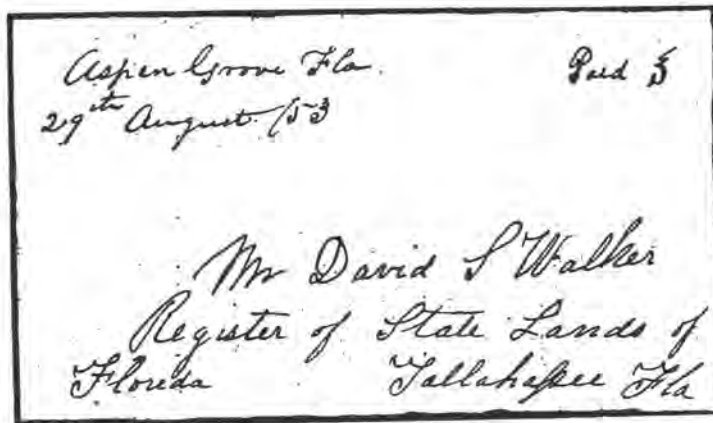 Aspen Grove Fla. Paid 3
29th August /53
Mr David S Walker
Register of State Lands of
Florida Tallahassee Fla